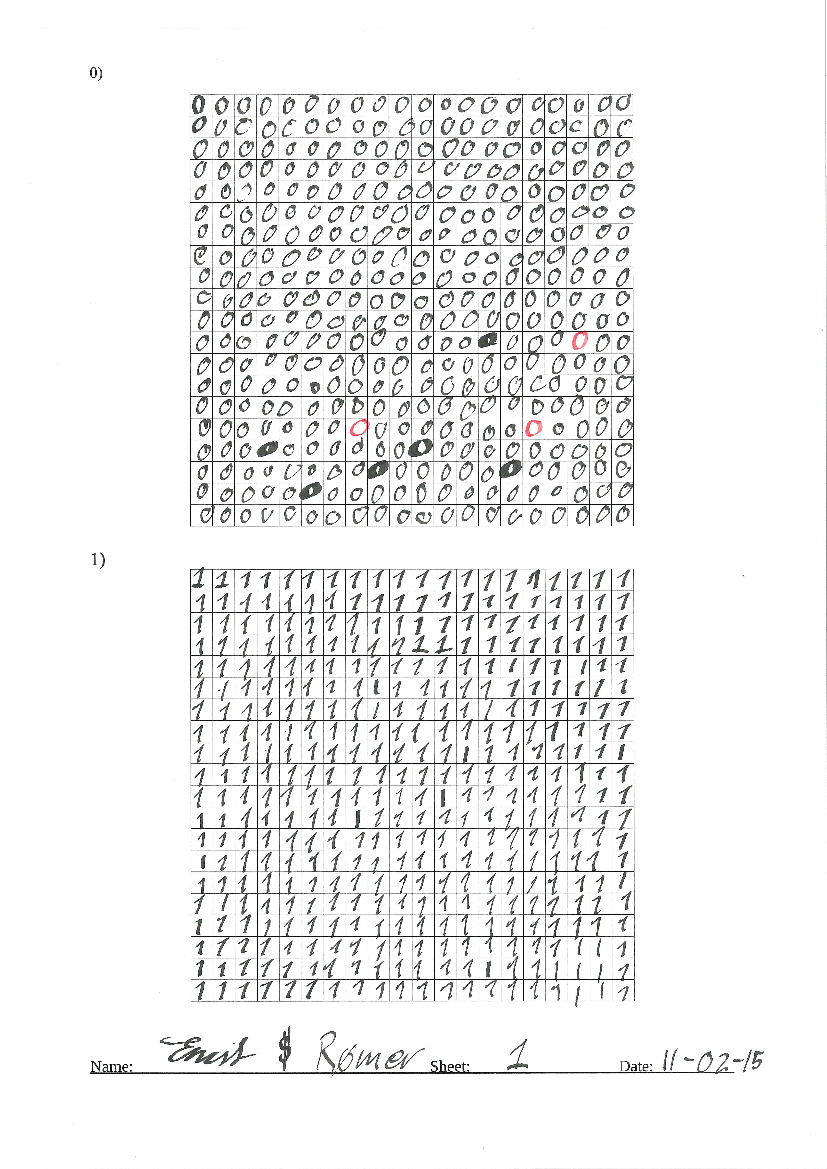 0)
0 0 0 0 0 0 0 0 0 0 0 0 0 0 0 0 0 0 0 0
0 0 0 0 0 0 0 0 0 0 0 0 0 0 0 0 0 0 0 0
0 0 0 0 0 0 0 0 0 0 0 0 0 0 0 0 0 0 0 0
0 0 0 0 0 0 0 0 0 0 0 0 0 0 0 0 0 0 0 0
0 0 0 0 0 0 0 0 0 0 0 0 0 0 0 0 0 0 0 0
0 0 0 0 0 0 0 0 0 0 0 0 0 0 0 0 0 0 0 0
0 0 0 0 0 0 0 0 0 0 0 0 0 0 0 0 0 0 0 0
0 0 0 0 0 0 0 0 0 0 0 0 0 0 0 0 0 0 0 0
0 0 0 0 0 0 0 0 0 0 0 0 0 0 0 0 0 0 0 0
0 0 0 0 0 0 0 0 0 0 0 0 0 0 0 0 0 0 0 0
0 0 0 0 0 0 0 0 0 0 0 0 0 0 0 0 0 0 0 0
0 0 0 0 0 0 0 0 0 0 0 0 0 0 0 0 0 0 0 0
0 0 0 0 0 0 0 0 0 0 0 0 0 0 0 0 0 0 0 0
0 0 0 0 0 0 0 0 0 0 0 0 0 0 0 0 0 0 0 0
0 0 0 0 0 0 0 0 0 0 0 0 0 0 0 0 0 0 0 0
0 0 0 0 0 0 0 0 0 0 0 0 0 0 0 0 0 0 0 0
0 0 0 0 0 0 0 0 0 0 0 0 0 0 0 0 0 0 0 0
0 0 0 0 0 0 0 0 0 0 0 0 0 0 0 0 0 0 0 0
0 0 0 0 0 0 0 0 0 0 0 0 0 0 0 0 0 0 0 0
0 0 0 0 0 0 0 0 0 0 0 0 0 0 0 0 0 0 0 0
1)
1 1 1 1 1 1 1 1 1 1 1 1 1 1 1 1 1 1 1 1
1 1 1 1 1 1 1 1 1 1 1 1 1 1 1 1 1 1 1 1
1 1 1 1 1 1 1 1 1 1 1 1 1 1 1 1 1 1 1 1
1 1 1 1 1 1 1 1 1 1 1 1 1 1 1 1 1 1 1 1
1 1 1 1 1 1 1 1 1 1 1 1 1 1 1 1 1 1 1 1
1 1 1 1 1 1 1 1 1 1 1 1 1 1 1 1 1 1 1 1
1 1 1 1 1 1 1 1 1 1 1 1 1 1 1 1 1 1 1 1
1 1 1 1 1 1 1 1 1 1 1 1 1 1 1 1 1 1 1 1
1 1 1 1 1 1 1 1 1 1 1 1 1 1 1 1 1 1 1 1
1 1 1 1 1 1 1 1 1 1 1 1 1 1 1 1 1 1 1 1
1 1 1 1 1 1 1 1 1 1 1 1 1 1 1 1 1 1 1 1
1 1 1 1 1 1 1 1 1 1 1 1 1 1 1 1 1 1 1 1
1 1 1 1 1 1 1 1 1 1 1 1 1 1 1 1 1 1 1 1
1 1 1 1 1 1 1 1 1 1 1 1 1 1 1 1 1 1 1 1
1 1 1 1 1 1 1 1 1 1 1 1 1 1 1 1 1 1 1 1
1 1 1 1 1 1 1 1 1 1 1 1 1 1 1 1 1 1 1 1
1 1 1 1 1 1 1 1 1 1 1 1 1 1 1 1 1 1 1 1
1 1 1 1 1 1 1 1 1 1 1 1 1 1 1 1 1 1 1 1
1 1 1 1 1 1 1 1 1 1 1 1 1 1 1 1 1 1 1 1
1 1 1 1 1 1 1 1 1 1 1 1 1 1 1 1 1 1 1 1
Name: $ Romer Sheet: 1 Date: 11-02-15